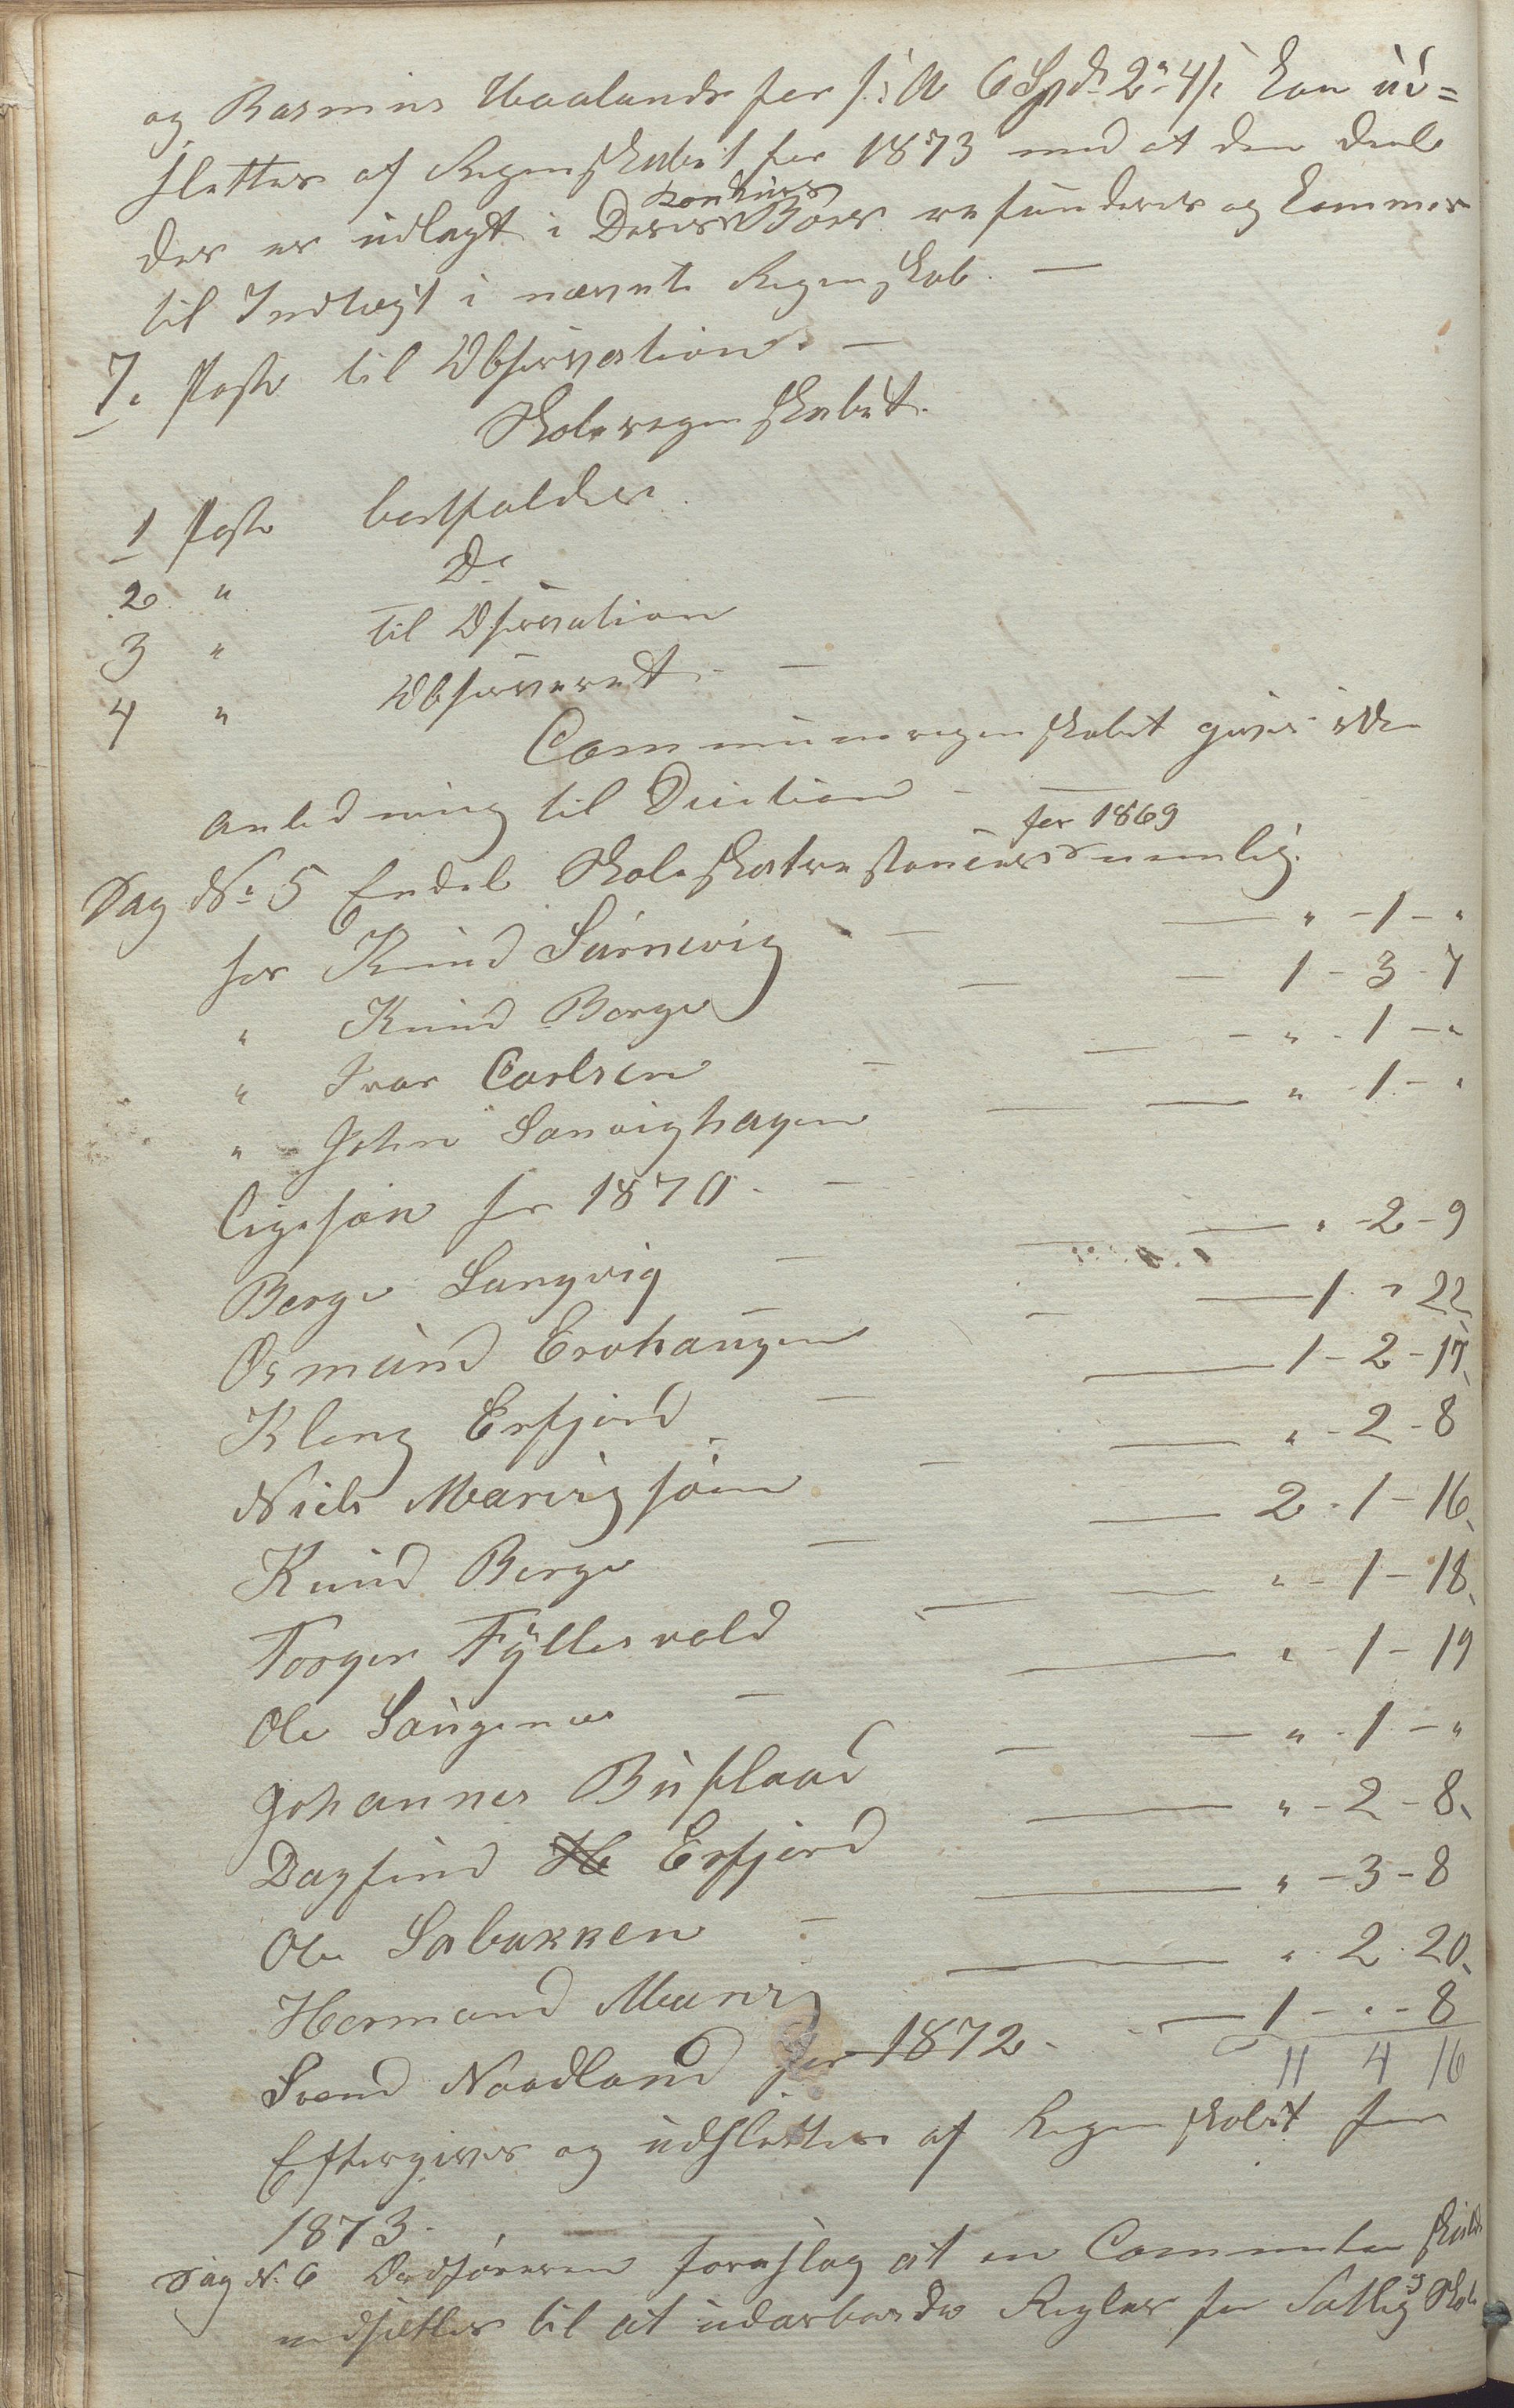 og Rasmus Haaland for 6 Spd 2 " 4 / kan ud=
slettes af Regenskabet for 1873 med at den Deel
der er udlagt i Deres Konkurs Boer refunderes og kommer
til Indtægt i nævnte Regenskab. —
7. Post til Observation. —
Skoleregenskabet.
1 Post bortfalder
2 " Do
3 " til Observation
4 " Observeret. —
Communeregenskabet giver ikke
Anledning til Decition — —
Sag No 5 Endel Skoleskatrestancer for 1869 nemlig.
for Knud Særnevig — — " - 1 - "
" Knud Berge — — 1 - 3 - 7
" Ivar Carlsen — — " - 1 - "
" John Sanvighagen — — " - 1 - "
Ligesom for 1870. —
Berge Sangvig — — " - 2 - 9
Osmund Erøhaugen — — 1 - " 22
Kleng Erfjord — — 1 - 2 - 17
Niels Marvigsøen — — " - 2 - 8
Knud Berge — — 2 - 1 - 16
Torger Fyllesvold — — " - 1 - 18
Ole Saugenes — — " - 1 - 19
Johannes Buflaad — — " - 1 - "
Dagfind Erfjord — " - 2 - 8
Ole Løbakken — — " - 3 - 8
Hermand Marvig — " - 2 - 20
Svend Naadland for 1872 - — 1 - " - 8
11 4 16
Eftergives og udslettes af Regenskabet for
1873. —
Sag N. 6 Ordføreren foreslog at en Commite skulde
nedsættes til at udarbeide Regler for Fattig og Skole